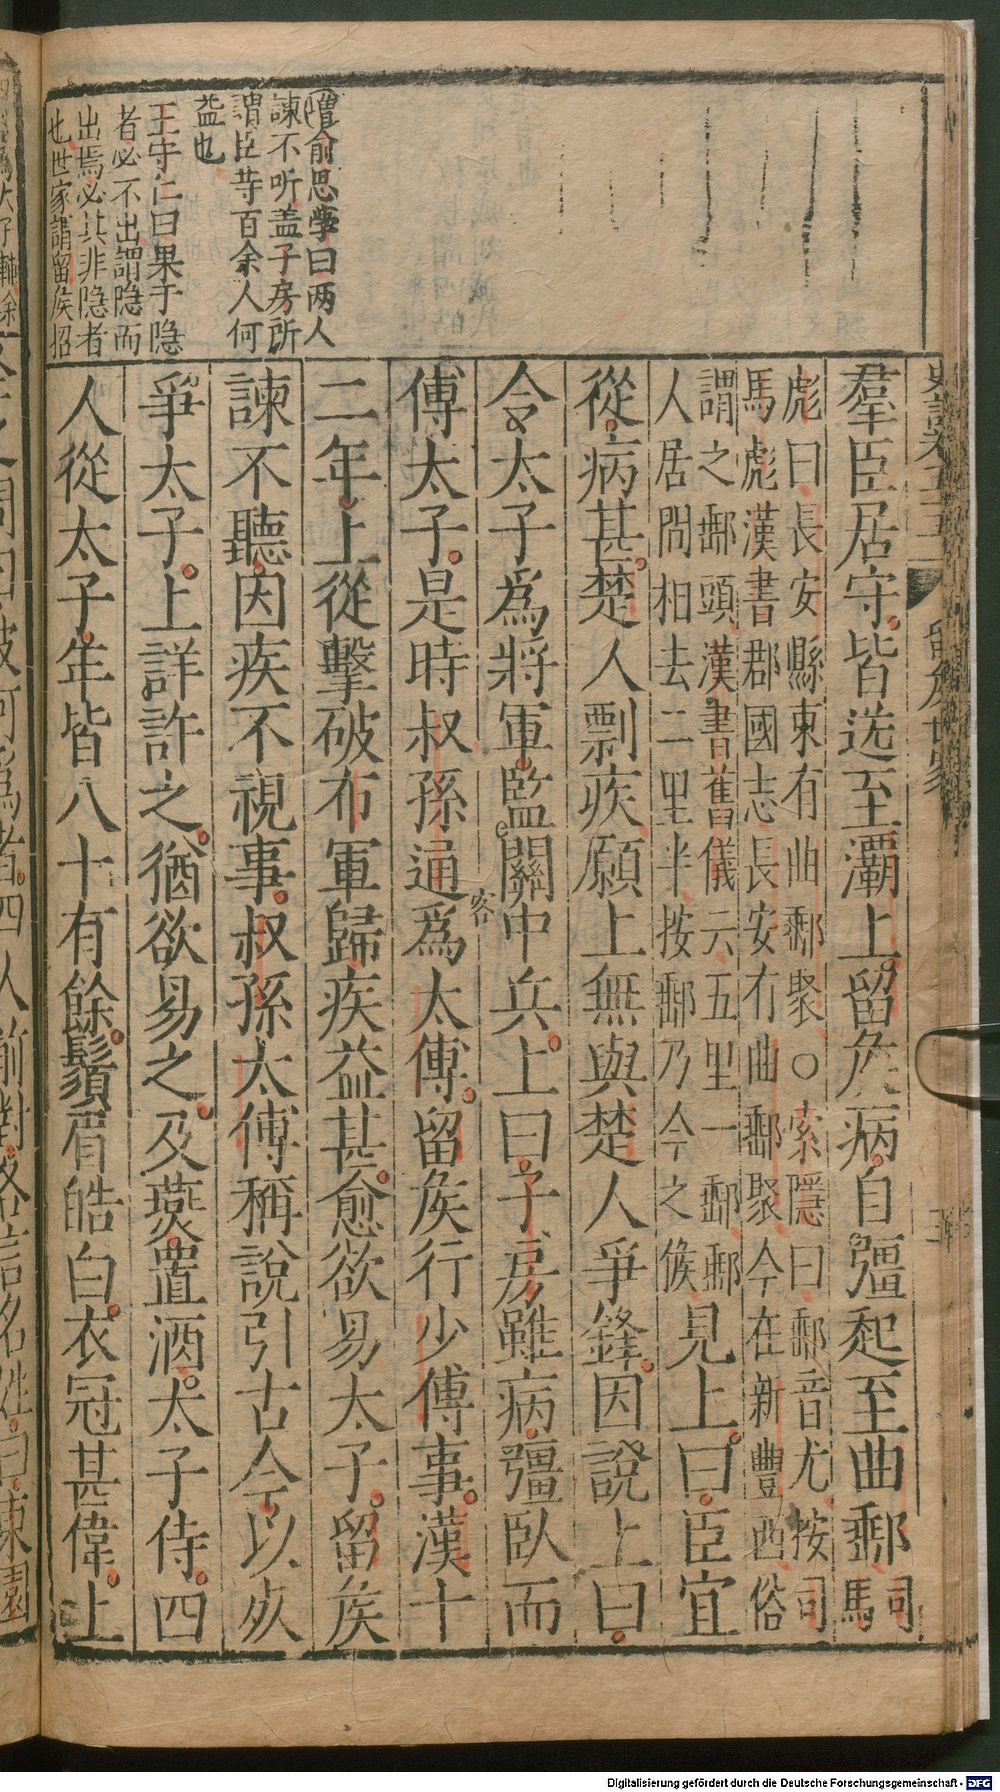 史記卷五十五 留侯世家
羣臣居守皆送至灞上留侯病自彊起至曲郵司馬
彪曰長安縣東有曲郵聚○索隱曰郵音尤按司
馬彪漢書郡國志長安有曲郵聚今在新豐西俗
謂之郵頭漢書舊儀云五里一郵郵
人居間相去二里半按郵乃今之候見上曰臣宜
從病甚楚人剽疾願上無與楚人爭鋒因說上曰
令太子爲將軍監關中兵上曰子房雖病彊臥而
傅太子是時叔孫通爲太傅留侯行少傅事漢十
二年上從擊破布軍歸疾益甚愈欲易太子留侯
諫不聽因疾不視事叔孫太傅稱說引古今以死
爭太子上詳許之猶欲易之及燕置酒太子侍四
人從太子年皆八十有餘鬚眉皓白衣冠甚偉上
增俞思學曰两人
諫不听盖子房所
謂臣等百余人何
益也
王守仁曰果于隐
者必不出謂隐而
出焉必其非隐者
也世家謂留侯招
客
Digitalisierung gefördert durch die Deutsche Forschungsgemeinschaft - DFG